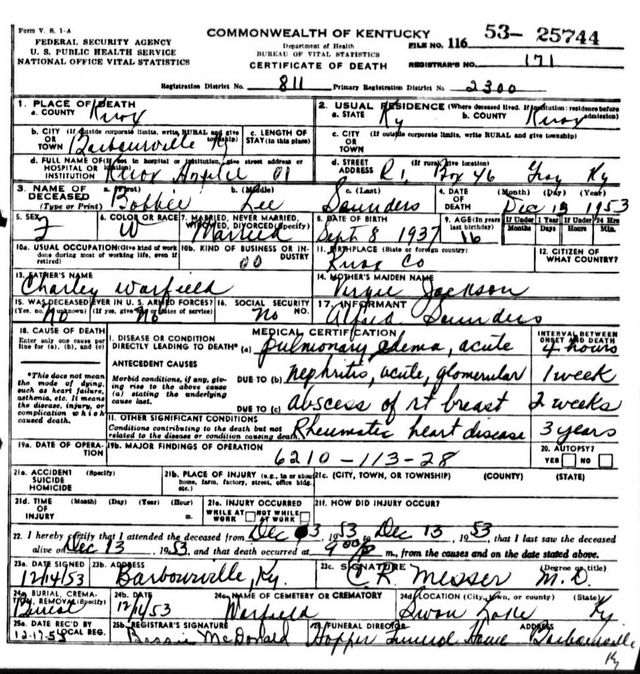 Form V. S. 1-A
FEDERAL SECURITY AGENCY
U. S. PUBLIC HEALTH SERVICE
NATIONAL OFFICE VITAL STATISTICS
COMMONWEALTH OF KENTUCKY
Department of Health
BUREAU OF VITAL STATISTICS
CERTIFICATE OF DEATH
FILE NO. 116 53- 25744
REGISTRAR'S NO. 171
Registration District No. 811 Primary Registration District No. 2300
1. PLACE OF DEATH
a. COUNTY Knox
2. USUAL RESIDENCE (Where deceased lived. If institution: residence before admission)
a. STATE Ky b. COUNTY Knox
b. CITY (If outside corporate limits, write RURAL and give township)
OR TOWN Barbourville Ky
c. LENGTH OF STAY (in this place)
c. CITY (If outside corporate limits, write RURAL and give township)
OR TOWN
d. FULL NAME OF (If not in hospital or institution, give street address or location)
HOSPITAL OR INSTITUTION Knox Hospital 01
d. STREET ADDRESS (If rural, give location)
R1, Box 46 Ky
3. NAME OF DECEASED (Type or Print)
a. (First) Bobbie b. (Middle) Lee c. (Last) Saunders
4. DATE OF DEATH (Month) (Day) (Year)
Dec 13 1953
5. SEX F
6. COLOR OR RACE W
7. MARRIED, NEVER MARRIED, WIDOWED, DIVORCED (Specify)
Married
8. DATE OF BIRTH
Sept 8 1937
9. AGE (In years last birthday) 16
If Under 1 Year Months Days
If Under 24 Hrs Hours Min.
10a. USUAL OCCUPATION (Give kind of work done during most of working life, even if retired)
10b. KIND OF BUSINESS OR INDUSTRY
00
11. BIRTHPLACE (State or foreign country)
Knox Co
12. CITIZEN OF WHAT COUNTRY?
13. FATHER'S NAME
Charley Warfield
14. MOTHER'S MAIDEN NAME
Virgie Jackson
15. WAS DECEASED EVER IN U. S. ARMED FORCES?
(Yes, no, or unknown) (If yes, give war or dates of service)
No No
16. SOCIAL SECURITY NO.
No
17. INFORMANT
Alfred Saunders
18. CAUSE OF DEATH
Enter only one cause per line for (a), (b), and (c)
*This does not mean the mode of dying, such as heart failure, asthenia, etc. It means the disease, injury, or complication which caused death.
MEDICAL CERTIFICATION
INTERVAL BETWEEN ONSET AND DEATH
I. DISEASE OR CONDITION DIRECTLY LEADING TO DEATH* (a) pulmonary edema, acute 4 hours
ANTECEDENT CAUSES
Morbid conditions, if any, giving rise to the above cause (a) stating the underlying cause last.
DUE TO (b) nephritis, acute, glomerular 1 week
DUE TO (c) abscess of rt breast 2 weeks
II. OTHER SIGNIFICANT CONDITIONS
Conditions contributing to the death but not related to the disease or condition causing death.
Rheumatic heart disease 3 years
19a. DATE OF OPERATION
19b. MAJOR FINDINGS OF OPERATION
6210-113-28
20. AUTOPSY?
YES NO
21a. ACCIDENT SUICIDE HOMICIDE (Specify)
21b. PLACE OF INJURY (e.g., in or about home, farm, factory, street, office bldg., etc.)
21c. (CITY, TOWN, OR TOWNSHIP) (COUNTY) (STATE)
21d. TIME OF INJURY (Month) (Day) (Year) (Hour) m.
21e. INJURY OCCURRED
WHILE AT WORK NOT WHILE AT WORK
21f. HOW DID INJURY OCCUR?
22. I hereby certify that I attended the deceased from Dec 3, 1953 to Dec 13, 1953, that I last saw the deceased
alive on Dec 13, 1953, and that death occurred at 9 00 P m., from the causes and on the date stated above.
23a. DATE SIGNED
12/14/53
23b. ADDRESS
Barbourville, Ky.
23c. SIGNATURE (Degree or title)
C R Messer M. D.
24a. BURIAL, CREMATION, REMOVAL (Specify)
Burial
24b. DATE
12/14/53
24c. NAME OF CEMETERY OR CREMATORY
Warfield
24d. LOCATION (City, town, or county) (State)
Swan Lake Ky
25a. DATE REC'D BY LOCAL REG.
12-17-53
25b. REGISTRAR'S SIGNATURE
Bessie McDonald
FUNERAL DIRECTOR ADDRESS
Hopper Funeral Home Barbourville
Ky